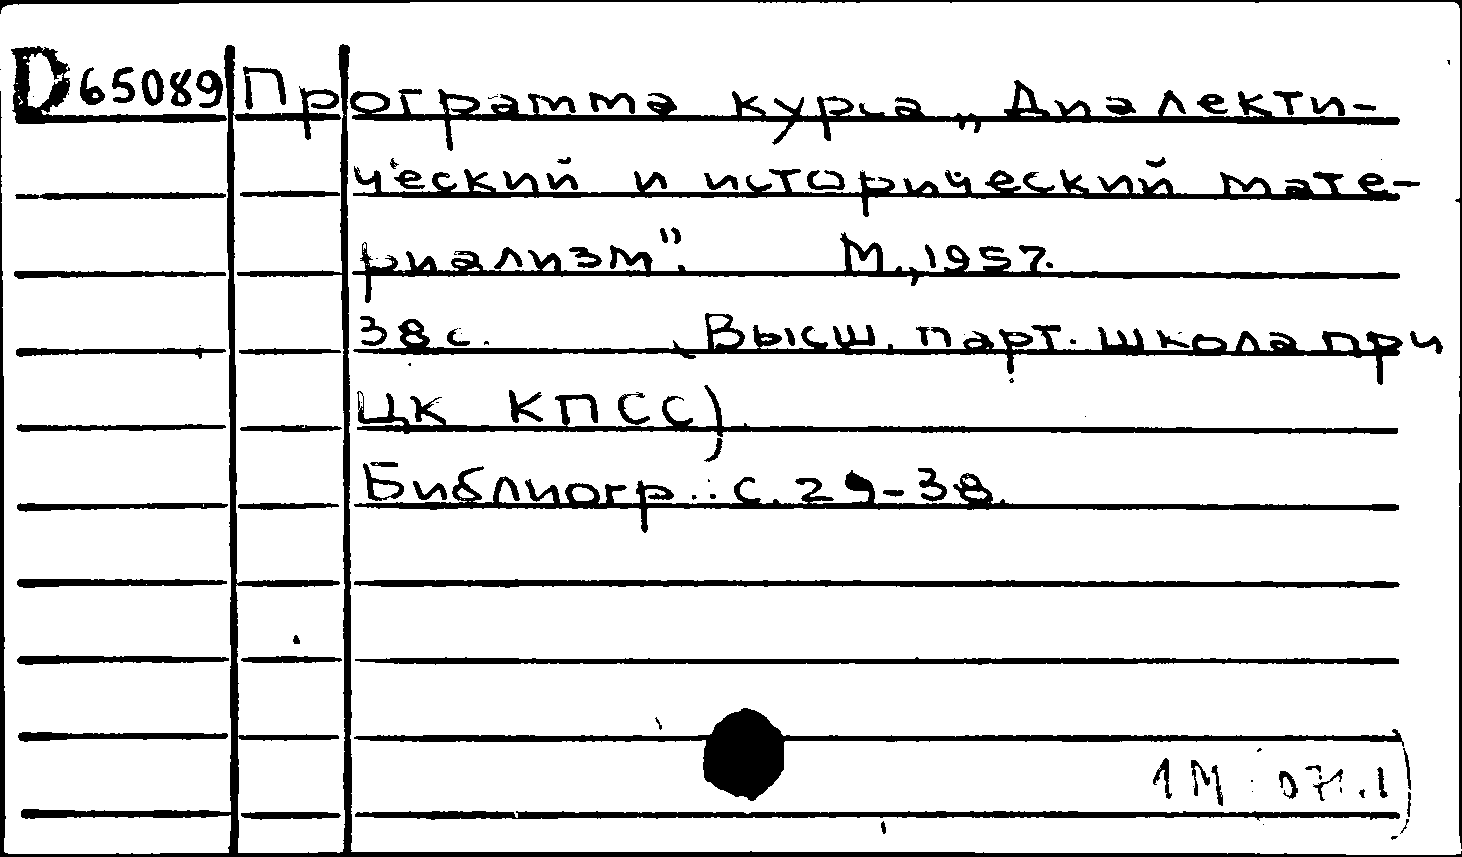 D65089 Программа курса „Диалекти-
ческий и исторический мате-
риализм". М., 1957.
38 с. (Высш. парт. школа при
ЦК КПСС)
Библиогр.: с. 29-38.
1М 071.1)